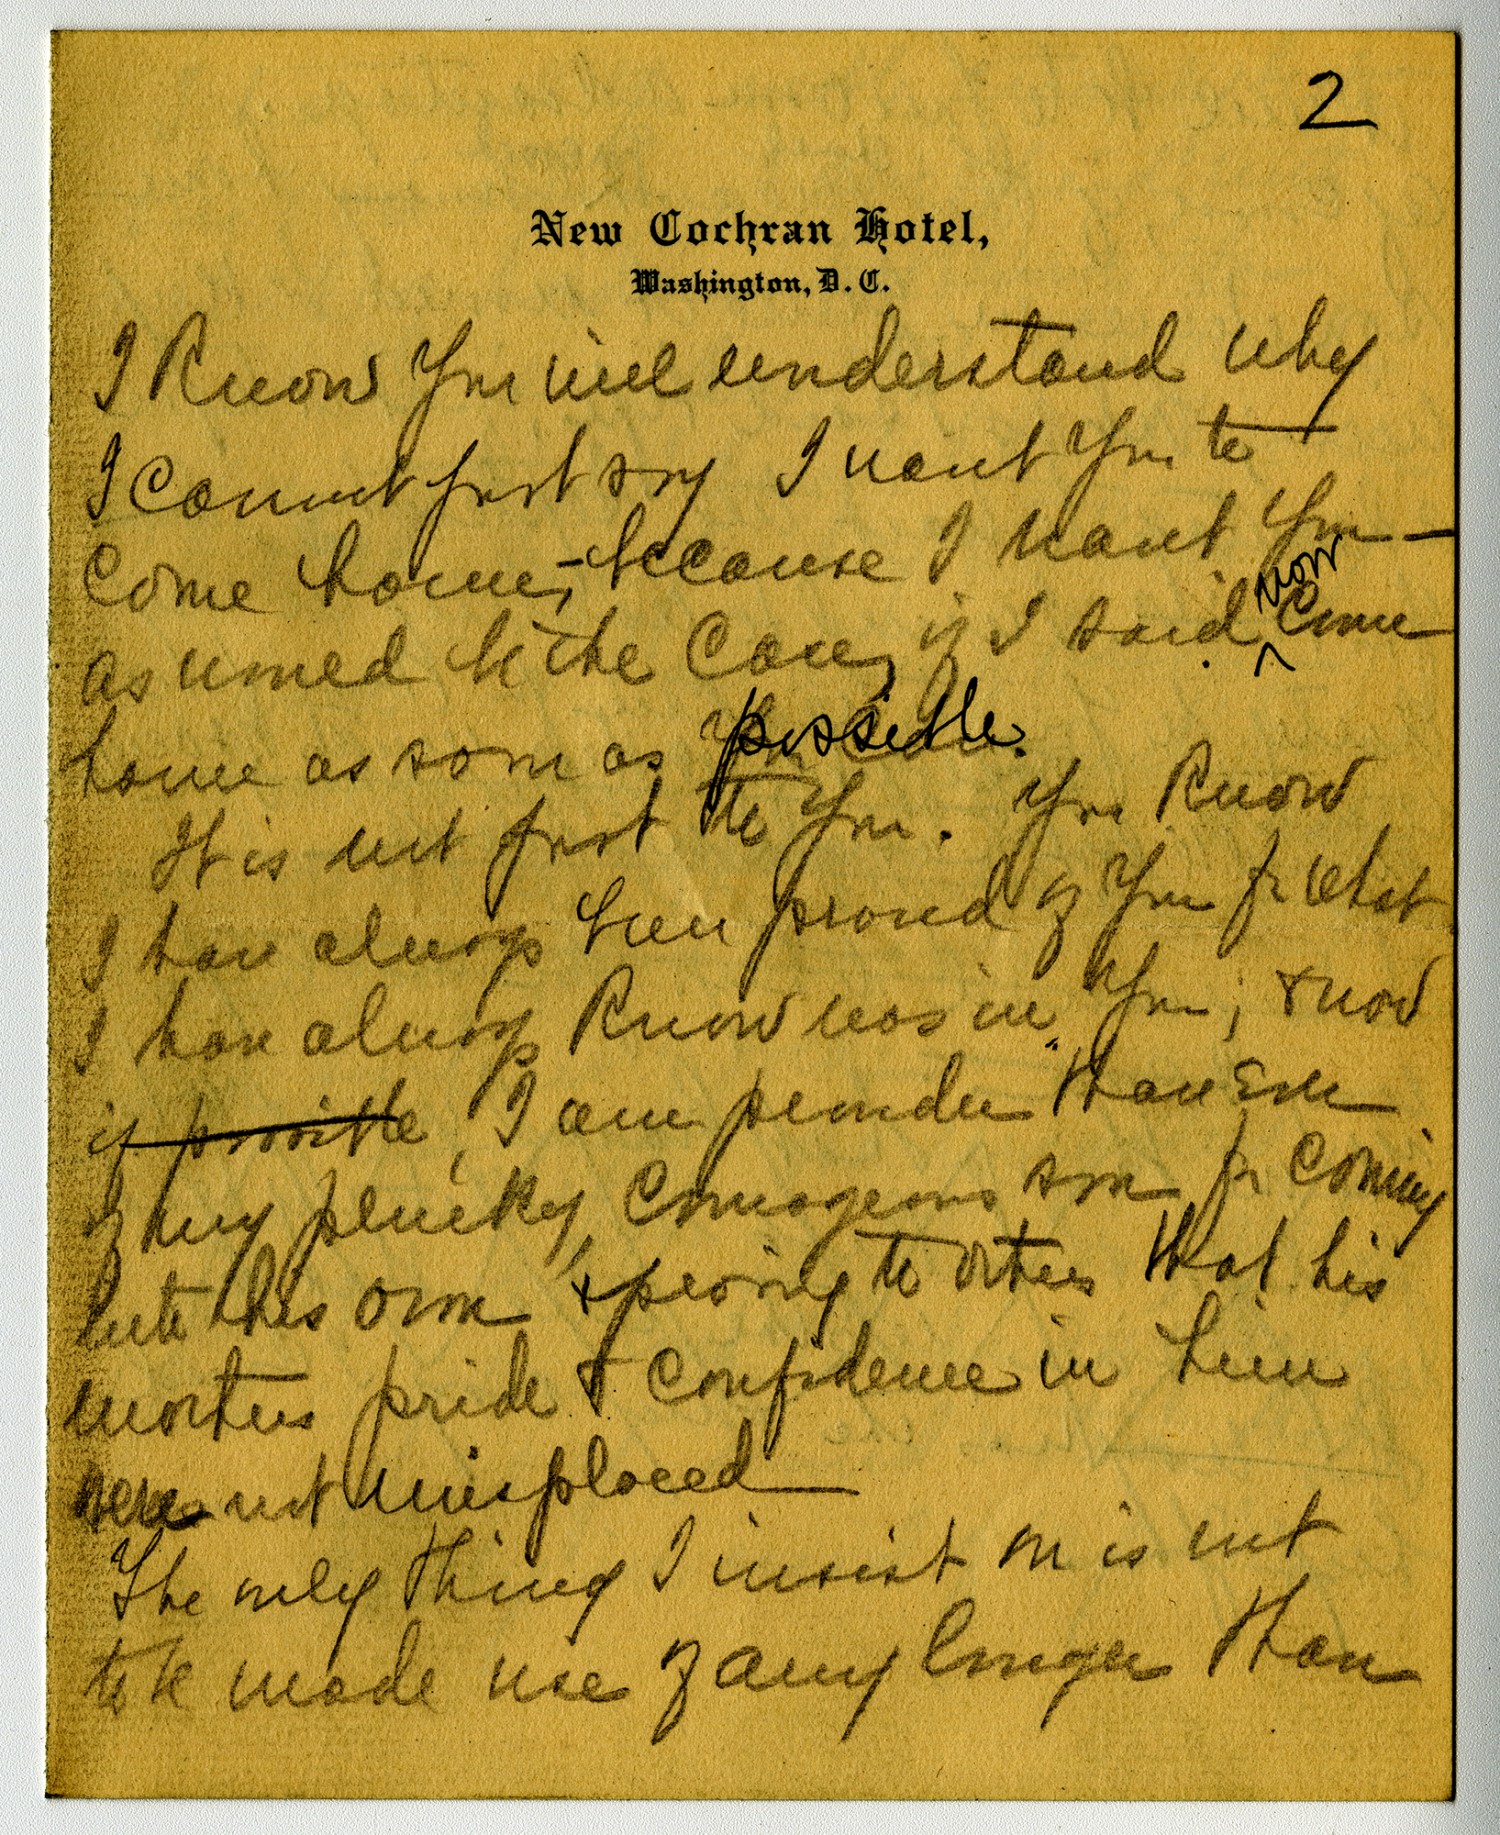 2
New Cochran Hotel,
Washington, D. C.
I Know you will understand why
I cannot just say I want you to
come home,- because I want you -
as would be the case, if I said now come
home as soon as possible.
It is not just to you. You Know
I have always been proud of you for what
I have always Know was in you; & now
if possible, I am prouder than ever
of my plucky, courageous son for coming
into his own & proving to others that his
mother's pride & confidence in him
were not misplaced
The only thing I insist on is not
to be made use of any longer than